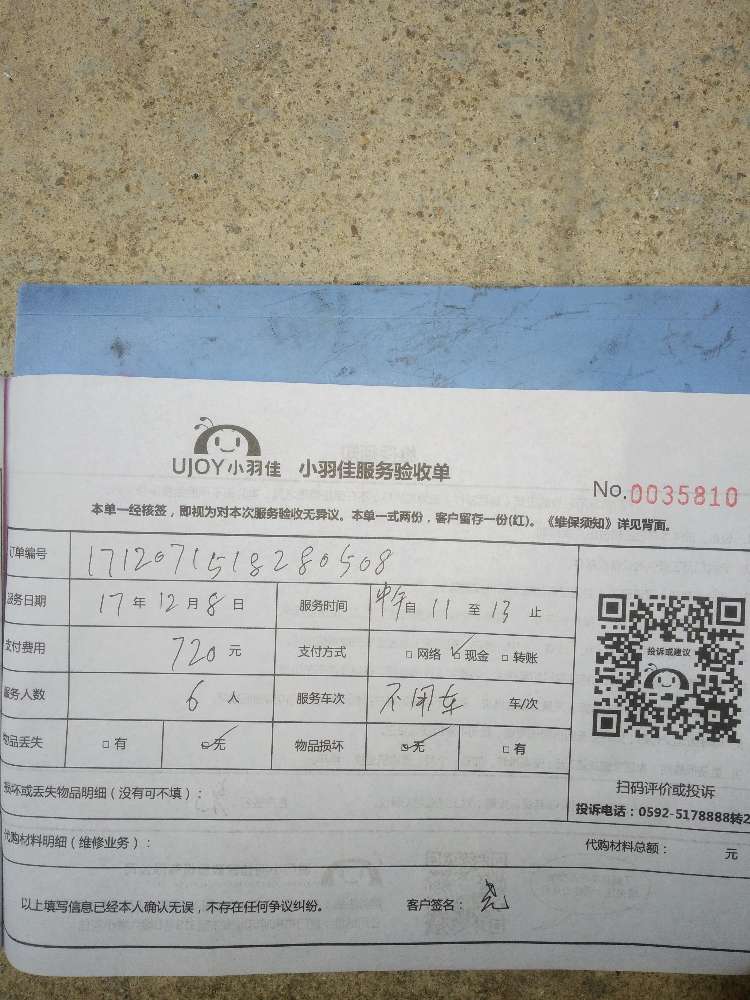 UJOY小羽佳 小羽佳服务验收单
No.0035810
本单一经核签，即视为对本次服务验收无异议。本单一式两份，客户留存一份(红)。《维保须知》详见背面。
订单编号 1712071518280508
服务日期 17年12月8日 服务时间 中午自11至13止
支付费用 720元 支付方式 □网络 □现金 □转账
服务人数 6人 服务车次 不用车 车/次
物品丢失 □有 □无 物品损坏 □无 □有
投诉或建议
扫码评价或投诉
投诉电话：0592-5178888转2
损坏或丢失物品明细（没有可不填）：
代购材料明细（维修业务）： 代购材料总额： 元
以上填写信息已经本人确认无误，不存在任何争议纠纷。 客户签名：